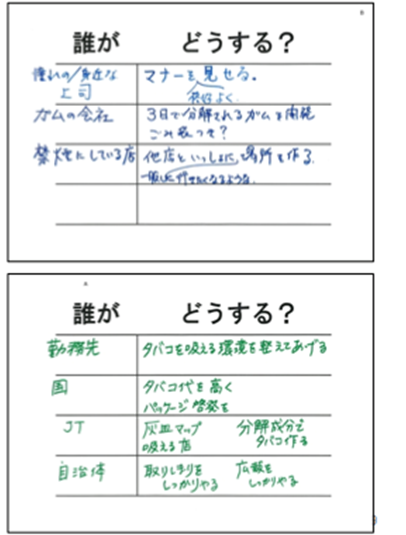 誰が どうする?
憧れの/身近な
上司
マナーを見せる。
格好よく。
ガムの会社
3日で分解されるガムを開発
ごみ袋つき?
禁煙にしている店
他店といっしょに、場所を作る。
行きたくなるような。
誰が どうする?
勤務先
タバコを吸える環境を整えてあげる
国
タバコ代を高く
パッケージ啓発を
JT
灰皿マップ
吸える店
分解成分で
タバコ作る
自治体
取りしまりを
しっかりやる
広報を
しっかりやる